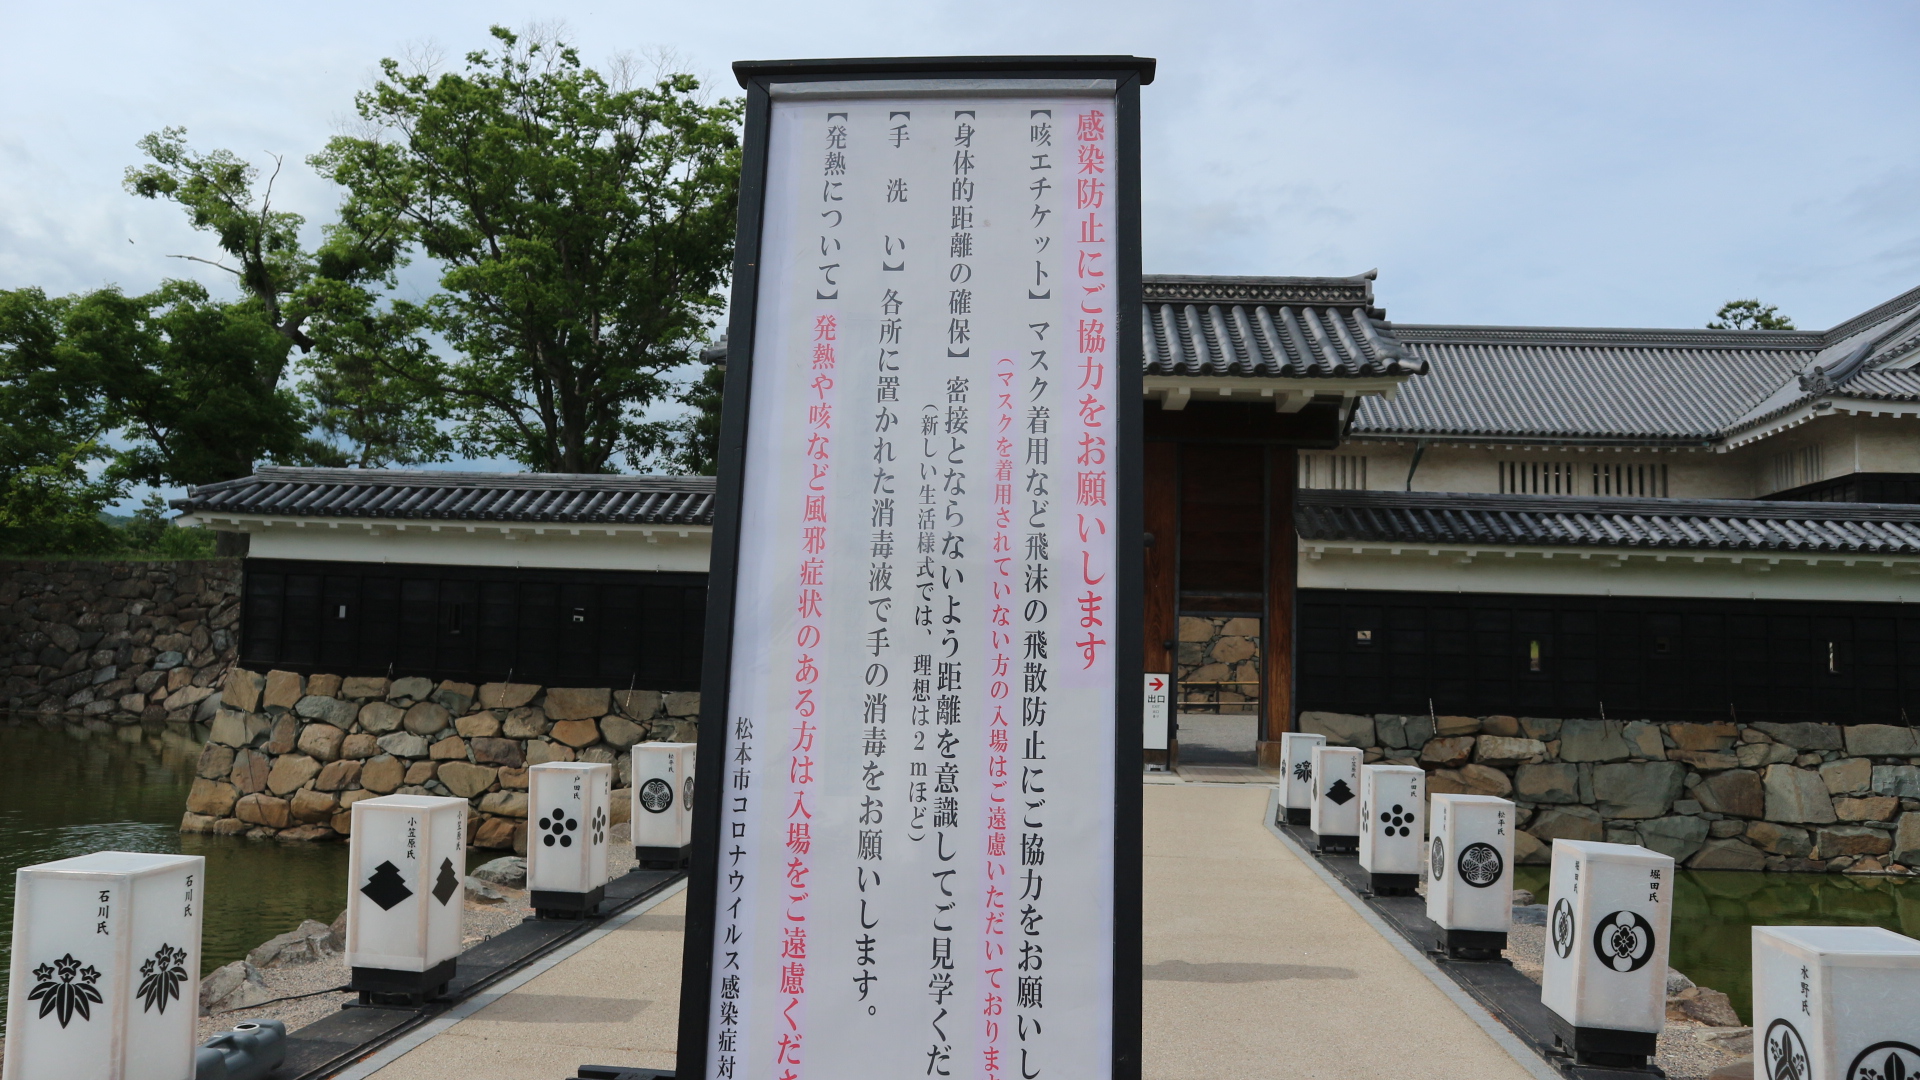 感染防止にご協力をお願いします
【咳エチケット】マスク着用など飛沫の飛散防止にご協力をお願いし
（マスクを着用されていない方の入場はご遠慮いただいておりま
【身体的距離の確保】密接とならないよう距離を意識してご見学くだ
（新しい生活様式では、理想は2mほど）
【手洗い】各所に置かれた消毒液で手の消毒をお願いします。
【発熱について】発熱や咳など風邪症状のある方は入場をご遠慮くださ
松本市コロナウイルス感染症対
出口
石川氏
石川氏
小笠原氏
小笠原氏
戸田氏
松平氏
小笠原氏
戸田氏
松平氏
堀田氏
堀田氏
水野氏